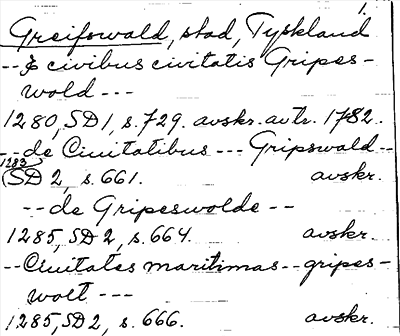 1.
Greifswald, stad, Tyskland
-- civibus civitatis Gripes-
wold ---
1280, SD 1, s. 729. avskr. avtr. 1782.
-- de Ciuitatibus --- Gripswald --
1283
SD 2, s. 661. avskr.
-- de Gripeswolde --
1285, SD 2, s. 664. avskr.
-- Ciuitates maritimas -- gripes-
wolt ---
1285, SD 2, s. 666. avskr.